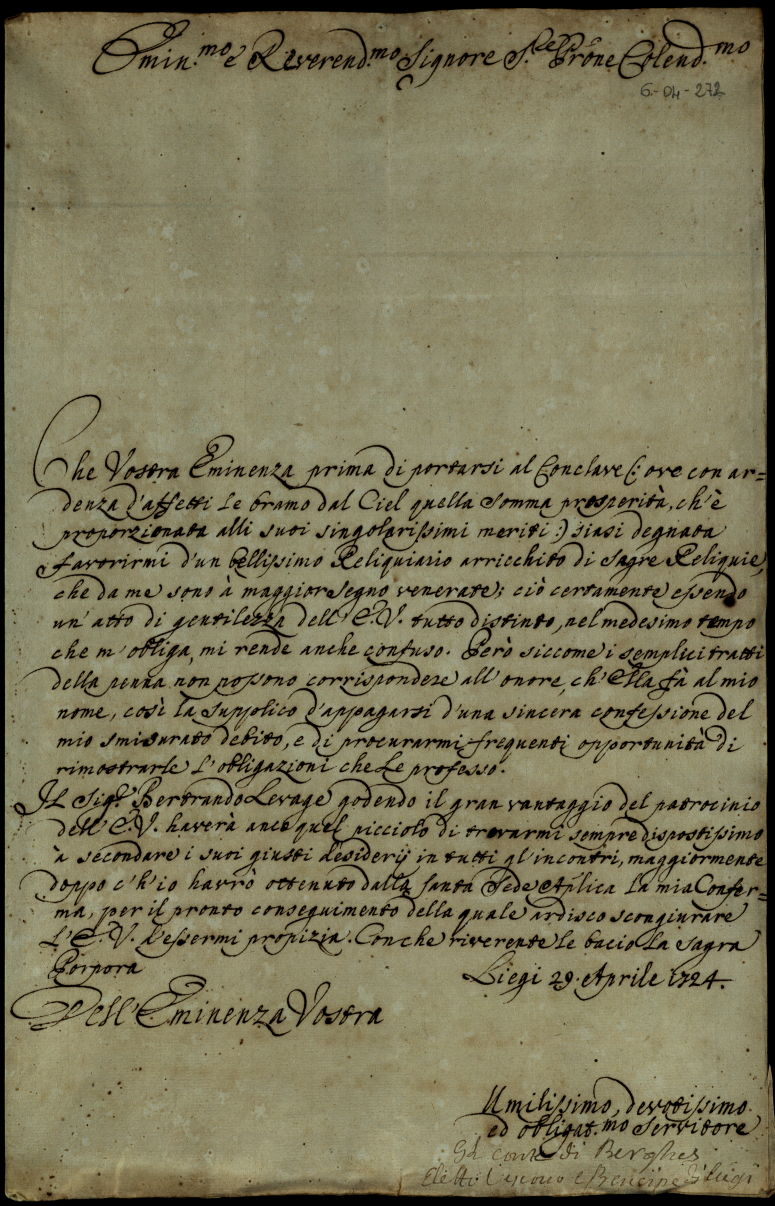 Emin.mo e Reverend.mo Signore S.re Prōne Colend.mo
6-04-272
Che Vostra Eminenza prima di portarsi al Conclave (: ove con ar=
denza d'affetti le bramo dal Ciel quella somma prosperità, ch'è
proporzionata alli suoi singolarissimi meriti :) siasi degnata
favorirmi d'un bellissimo Reliquiario arricchito di Sagre Reliquie,
che da me sono à maggior segno venerate; ciò certamente essendo
un' atto di gentilezza dell' E.V. tutto distinto, nel medesimo tempo
che m'obliga, mi rende anche confuso. Però siccome i semplici tratti
della penna non possono corrispondere all' onore, ch'Ella fà al mio
nome, così la supplico d'appagarsi d'una sincera confessione del
mio smisurato debito, e di procurarmi frequenti opportunità di
rimostrarle l'obligazioni che le professo.
Il Sig.r Bertrando Levage godendo il gran vantaggio del patrocinio
dell' E.V. haverà anco quel picciolo di trovarmi sempre dispostissimo
à secondare i suoi giusti desiderij in tutti gl'incontri, maggiormente
doppo c'h'io havrò ottenuto dalla Santa Sede Aplica la mia Confer=
ma, per il pronto conseguimento della quale ardisco scongiurare
l'E.V. d'essermi propizia. Con che riverente le bacio la Sagra
Porpora
Liegi 29. Aprile 1724.
Dell' Eminenza Vostra
Umilissimo, devotissimo
ed obligat.mo Servitore
conte di Berghes
Eletto Vescovo e Principe di Liegi